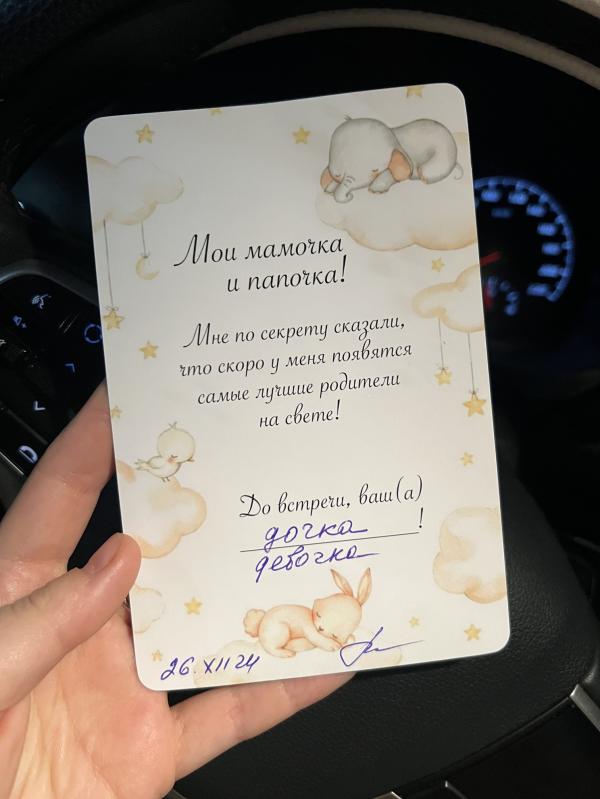 Мои мамочка
и папочка!
Мне по секрету сказали,
что скоро у меня появятся
самые лучшие родители
на свете!
До встречи, ваш(а)
дочка!
девочка
26.XII 24